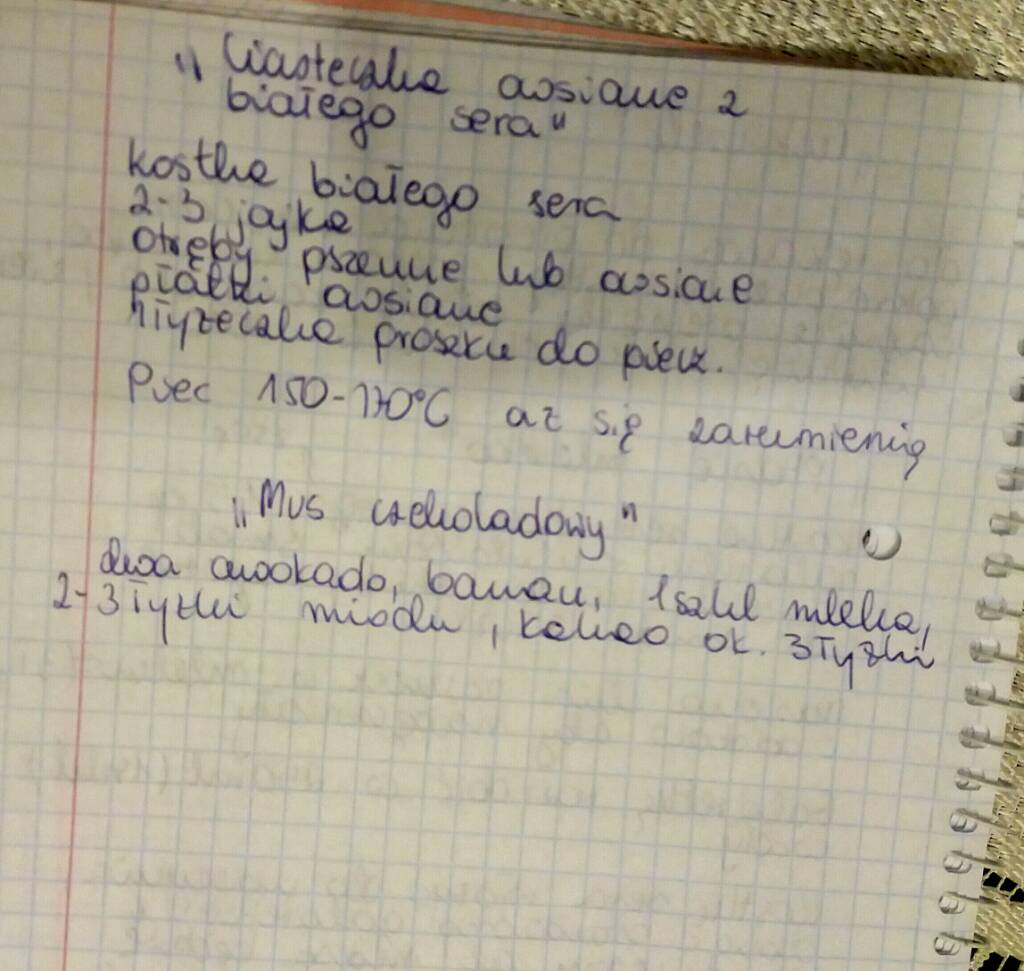 „Ciasteczka owsiane z
białego sera"
kostka białego sera
2-3 jajka
otręby pszenne lub owsiane
płatki owsiane
1łyżeczka proszku do piecz.
Piec 150-170°C aż się zarumienią
„Mus czekoladowy"
dwa awokado, banan, 1szkl mleka,
2-3łyżki miodu, kakao ok. 3łyżki